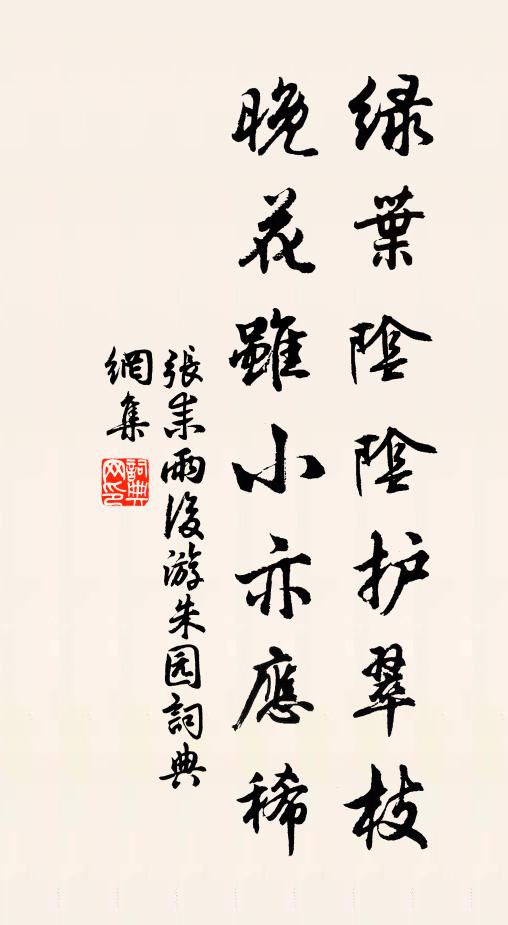 緑葉陰陰护翠枝
晚花雖小亦應稀
張耒雨後游朱园詞典
網集
詞典网印